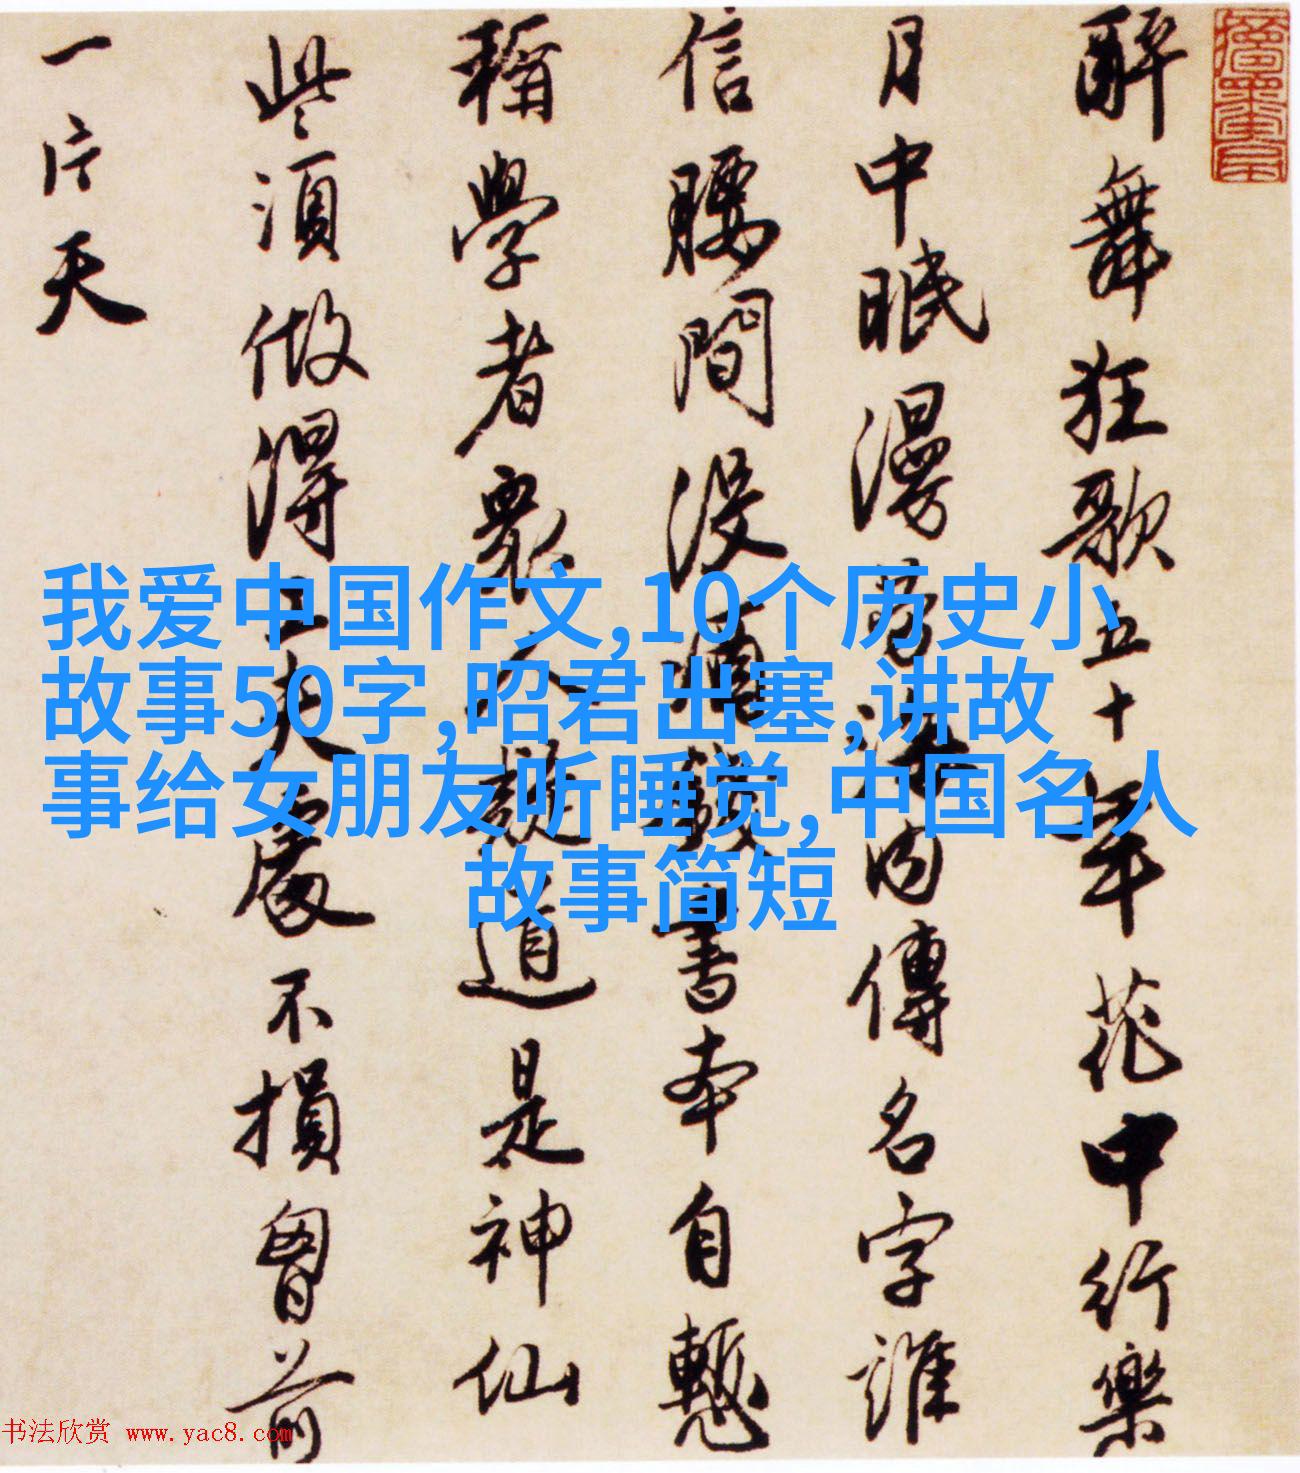 醉舞狂歌五十年花中行樂
月中眠漫勞海內傳名字誰
信腰間沒酒錢書本自慙
稱學者眾人疑道是神仙
些須做得工夫處不損胸前
一片天
我爱中国作文,10个历史小
故事50字,昭君出塞,讲故
事给女朋友听睡觉,中国名人
故事简短
书法欣赏 www.yac8.com